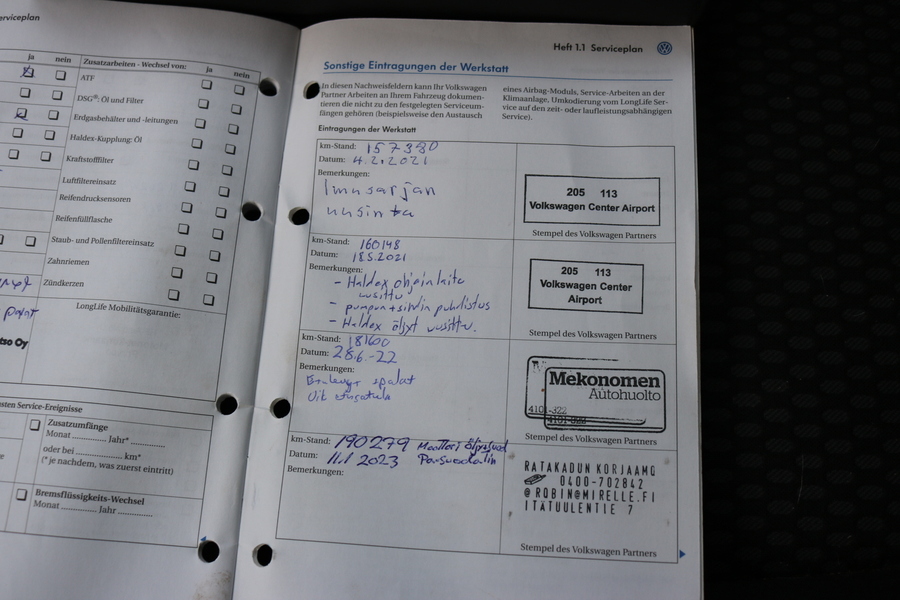 erviceplan
ja nein Zusatzarbeiten - Wechsel von: ja nein
ATF
DSG®: Öl und Filter
Erdgasbehälter und -leitungen
Haldex-Kupplung: Öl
Kraftstofffilter
Luftfiltereinsatz
Reifendrucksensoren
Reifenfüllflasche
Staub- und Pollenfiltereinsatz
Zahnriemen
Zündkerzen
LongLife Mobilitätsgarantie:
tso Oy
sten Service-Ereignisse
Zusatzumfänge
Monat ............ Jahr* ............
oder bei ............... km*
(* je nachdem, was zuerst eintritt)
Bremsflüssigkeits-Wechsel
Monat ............ Jahr ............
Heft 1.1 Serviceplan
Sonstige Eintragungen der Werkstatt
In diesen Nachweisfeldern kann Ihr Volkswagen
Partner Arbeiten an Ihrem Fahrzeug dokumen-
tieren die nicht zu den festgelegten Serviceum-
fängen gehören (beispielsweise den Austausch
eines Airbag-Moduls, Service-Arbeiten an der
Klimaanlage, Umkodierung vom LongLife Ser-
vice auf den zeit- oder laufleistungsabhängigen
Service).
Eintragungen der Werkstatt
km-Stand: 157380
Datum: 4.2.2021
Bemerkungen:
Imusarjan
uusinta
205 113
Volkswagen Center Airport
Stempel des Volkswagen Partners
km-Stand: 160148
Datum: 18.5.2021
Bemerkungen:
- Haldex ohjainlaite
uusittu
- pumpun + sihdin puhdistus
- Haldex öljyt uusittu.
205 113
Volkswagen Center
Airport
Stempel des Volkswagen Partners
km-Stand: 181600
Datum: 28.6.-22
Bemerkungen:
palat
Mekonomen
Autohuolto
4101-322
Stempel des Volkswagen Partners
km-Stand: 190279 Moottori
Datum: 11.1 2023
Bemerkungen:
RATAKADUN KORJAAMO
0400-702842
@ROBIN@MIRELLE.FI
ITÄTUULENTIE 7
Stempel des Volkswagen Partners